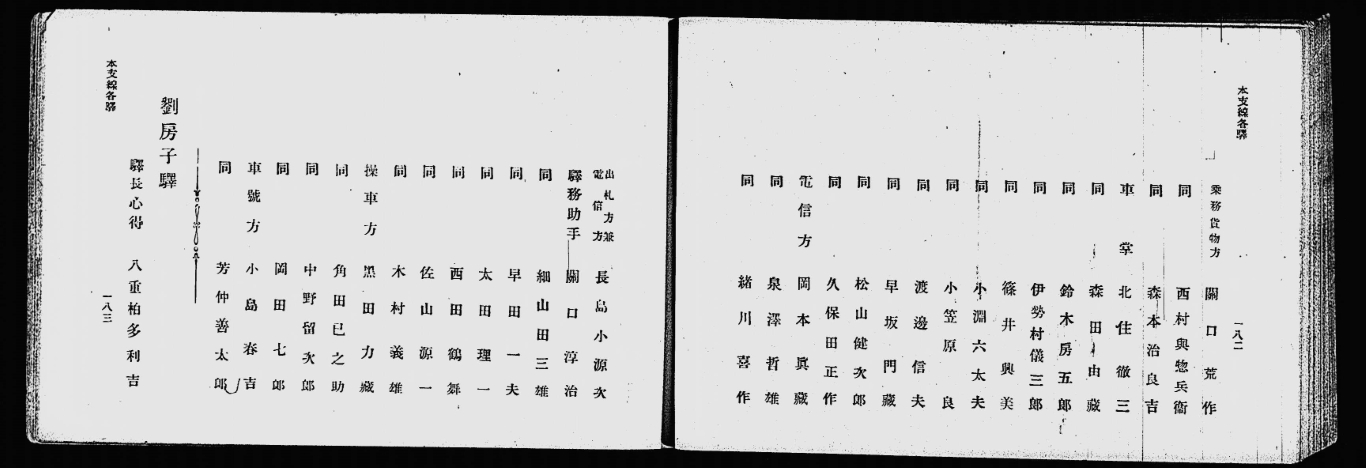 本支線各驛
乘務貨物方 關口荒作
同 西村與惣兵衞
同 森本治良吉
車掌 北住徹三
同 森田由藏
同 鈴木房五郎
同 伊勢村儀三郎
同 篠井與美
同 小淵六太夫
同 小笠原良
同 渡邊信夫
同 早坂門藏
同 松山健次郎
同 久保田正作
電信方 岡本眞藏
同 泉澤哲雄
同 緒川喜作
一八二
出札方兼電信方 長島小源次
驛務助手 關口淳治
同 細山田三雄
同 早田一夫
同 太田理一
同 西田鶴舞
同 佐山源一
同 木村義雄
操車方 黑田力藏
同 角田已之助
同 中野留次郎
同 岡田七郎
車號方 小島春吉
同 芳仲善太郎
劉房子驛
驛長心得 八重柏多利吉
本支線各驛
一八三